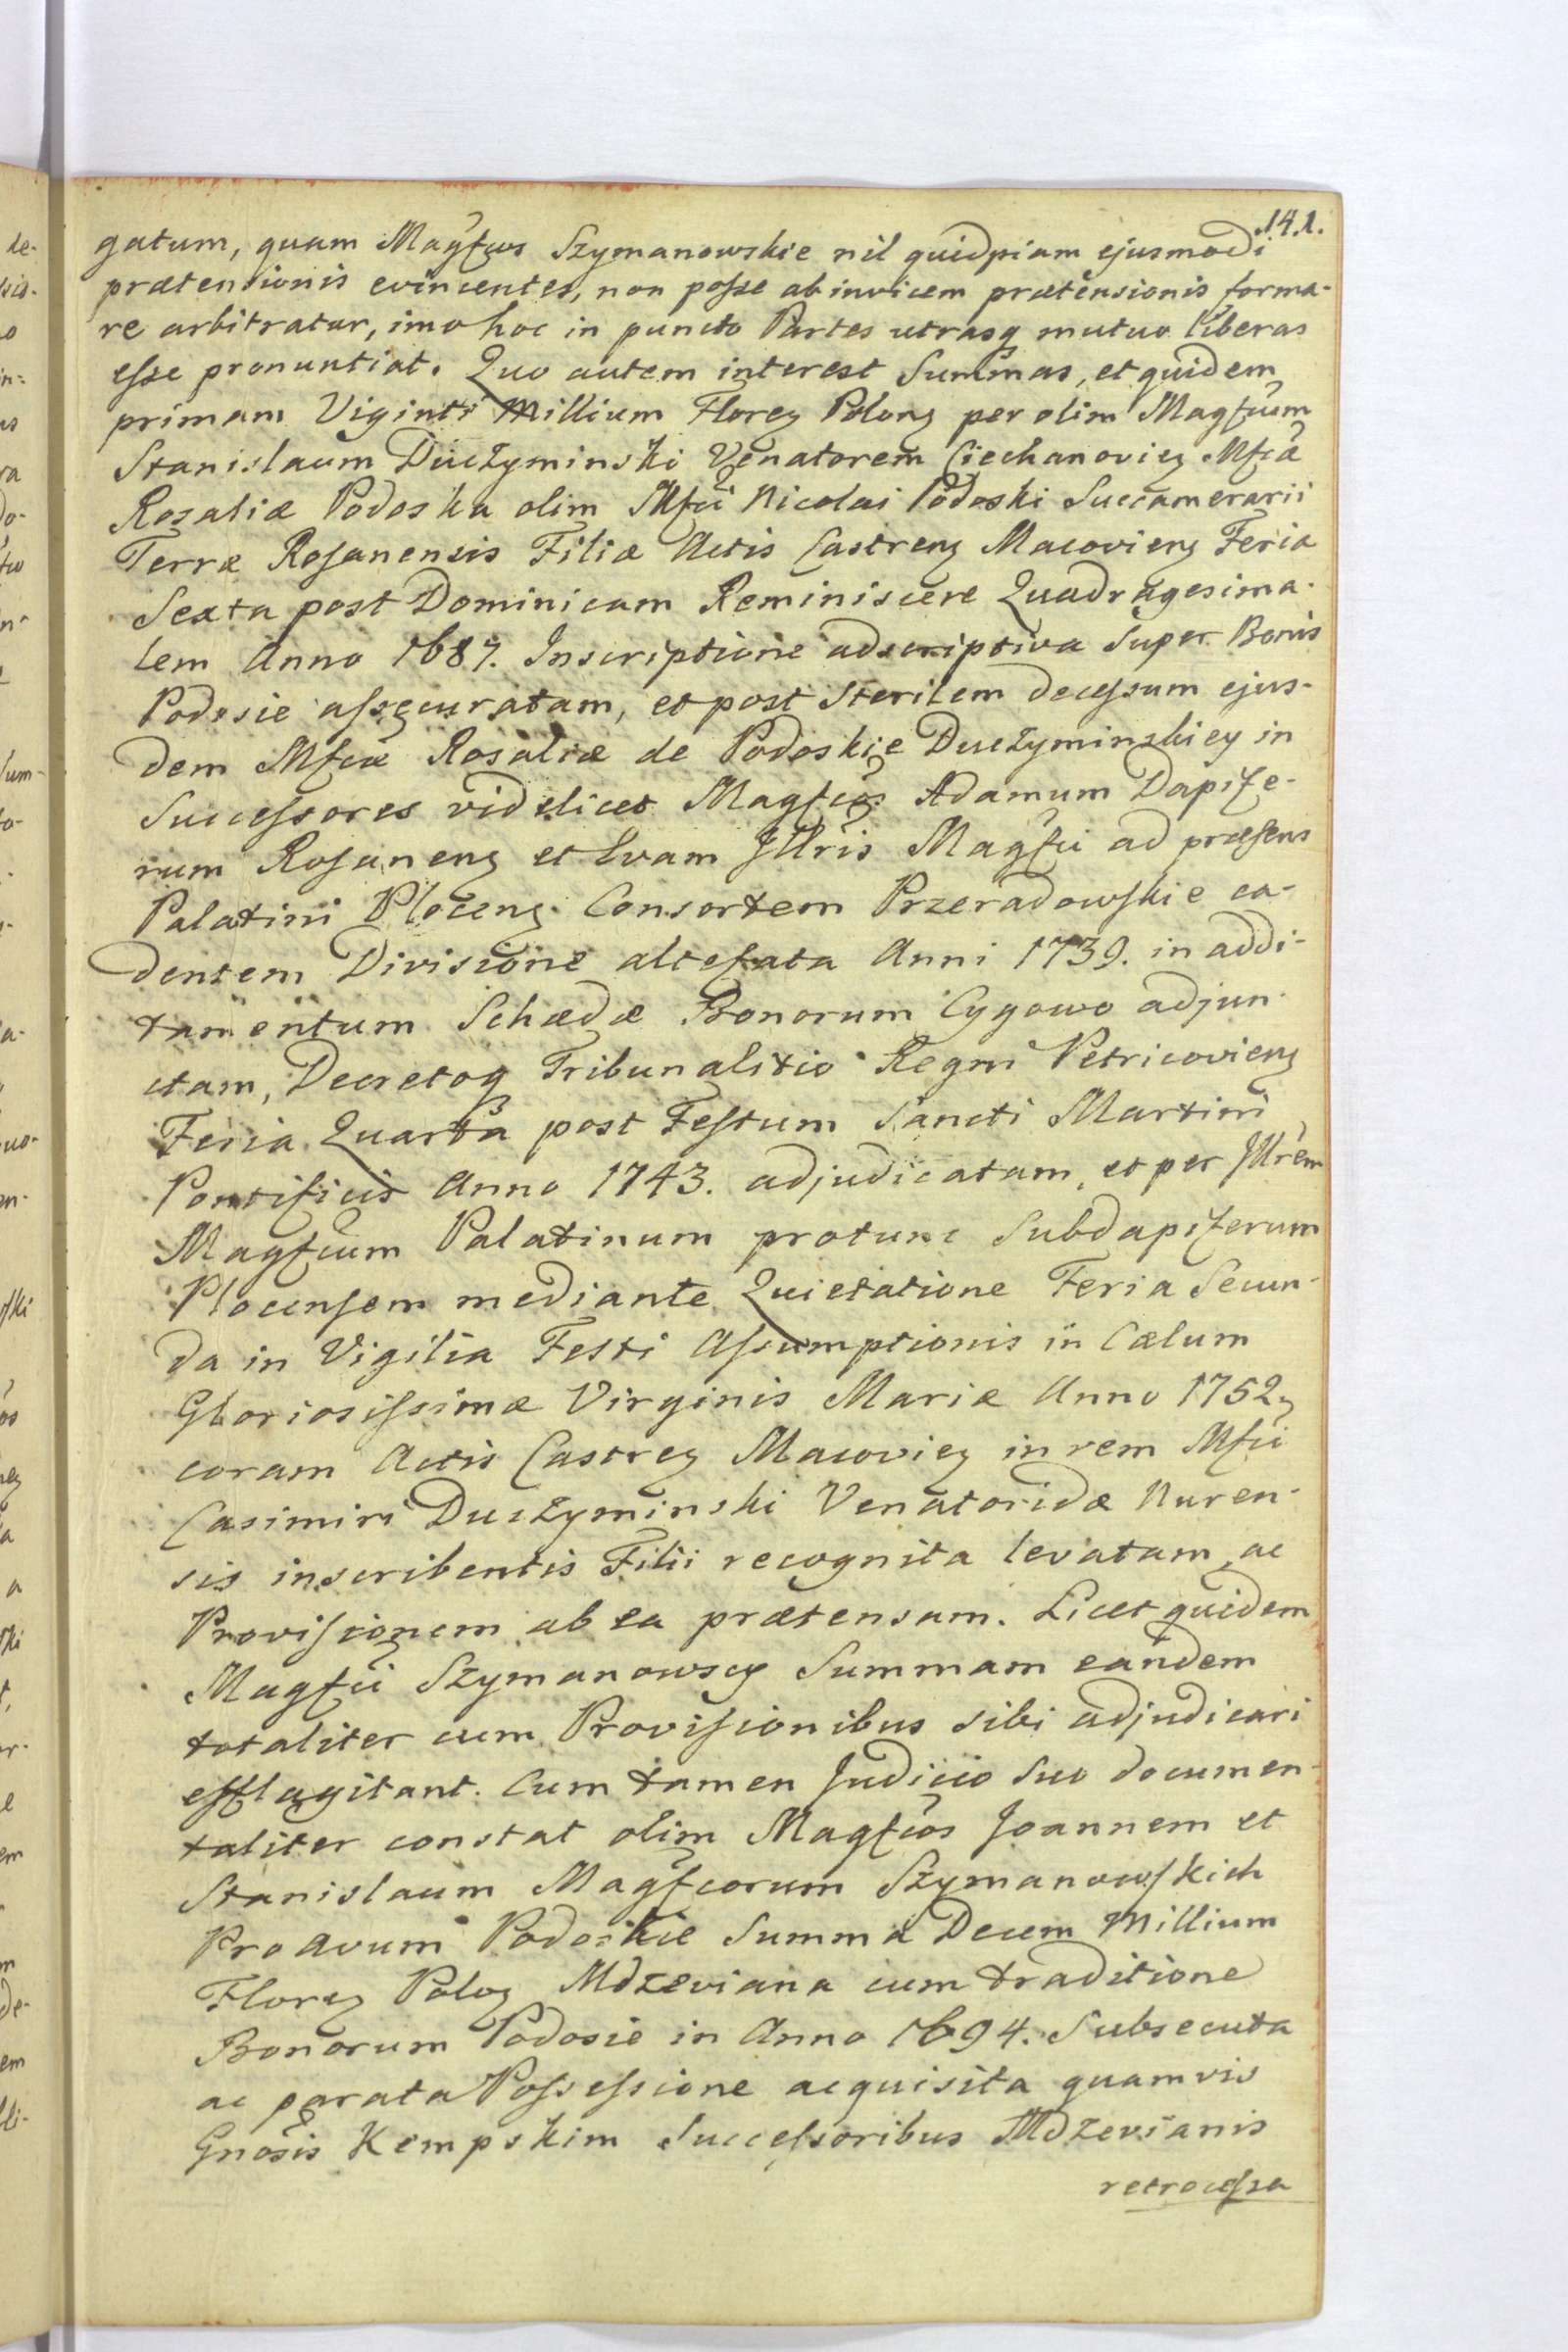 141.
gatum, quam Magfcos Szymanowskie nil quidpiam ejusmodi
prætensionis evincentes, non posse ab invicem prætensionis forma-
re arbitratur, imo hoc in puncto Partes utrasq mutuo liberas
esse pronuntiat. Quo autem interest Summas, et quidem
primam Viginti Millium Florez Polonz per olim Magfcum
Stanislaum Duczyminski Venatorem Ciechanoviez Mfcæ
Rozaliæ Podoska olim Mfci Nicolai Podoski Succamerarii
Terræ Rosanensis Filiæ Actis Castrenz Macovienz Feria
Sexta post Dominicam Reminiscere Quadragesima-
lem Anno 1687. Inscriptione adscriptiva Super Bonis
Podosie assecuratam, et post sterilem decessum ejus-
dem Mfcæ Rosaliæ de Podoskie Duczyminskiey in
Successores videlicet Magfcos Adamum Dapife-
rum Rosanenz et Evam Jllris Magfci ad præsens
Palatini Plocenz Consortem Przeradowskie ca-
dentem Divisione altefata Anni 1739. in addi-
tamentum Schædæ Bonorum Cygowo adjun-
ctam, Decretoq Tribunalitio Regni Petricovienz
Feria Quarta post Festum Sancti Martini
Pontificis Anno 1743. adjudicatam, et per Jllrem
Magfcum Palatinum protunc Subdapiferum
Plocensem mediante Quietatione Feria Secun-
da in Vigilia Festi Assumptionis in Cælum
Gloriosissimæ Virginis Mariæ Anno 1752
coram Actis Castrez Macoviez in rem Mfci
Casimiri Duczyminski Venatoridæ Nuren-
sis inscribentis Filii recognita levatam, ac
Provisionem ab ea prætensam. Licet quidem
Magfci Szymanowscy Summam eandem
totaliter cum Provisionibus sibi adjudicari
efflagitant. Cum tamen Judicio Suo documen-
taliter constat olim Magfcos Joannem et
Stanislaum Magfcorum Szymanowskich
Proavum Podoskie Summa Decem Millium
Florez Poloz Mdzeviana cum traditione
Bonorum Podosie in Anno 1694. Subsecuta
ac parata Possessione acquisita quamvis
Gnosis Kempskim Successoribus Mdzevianis
retrocessa